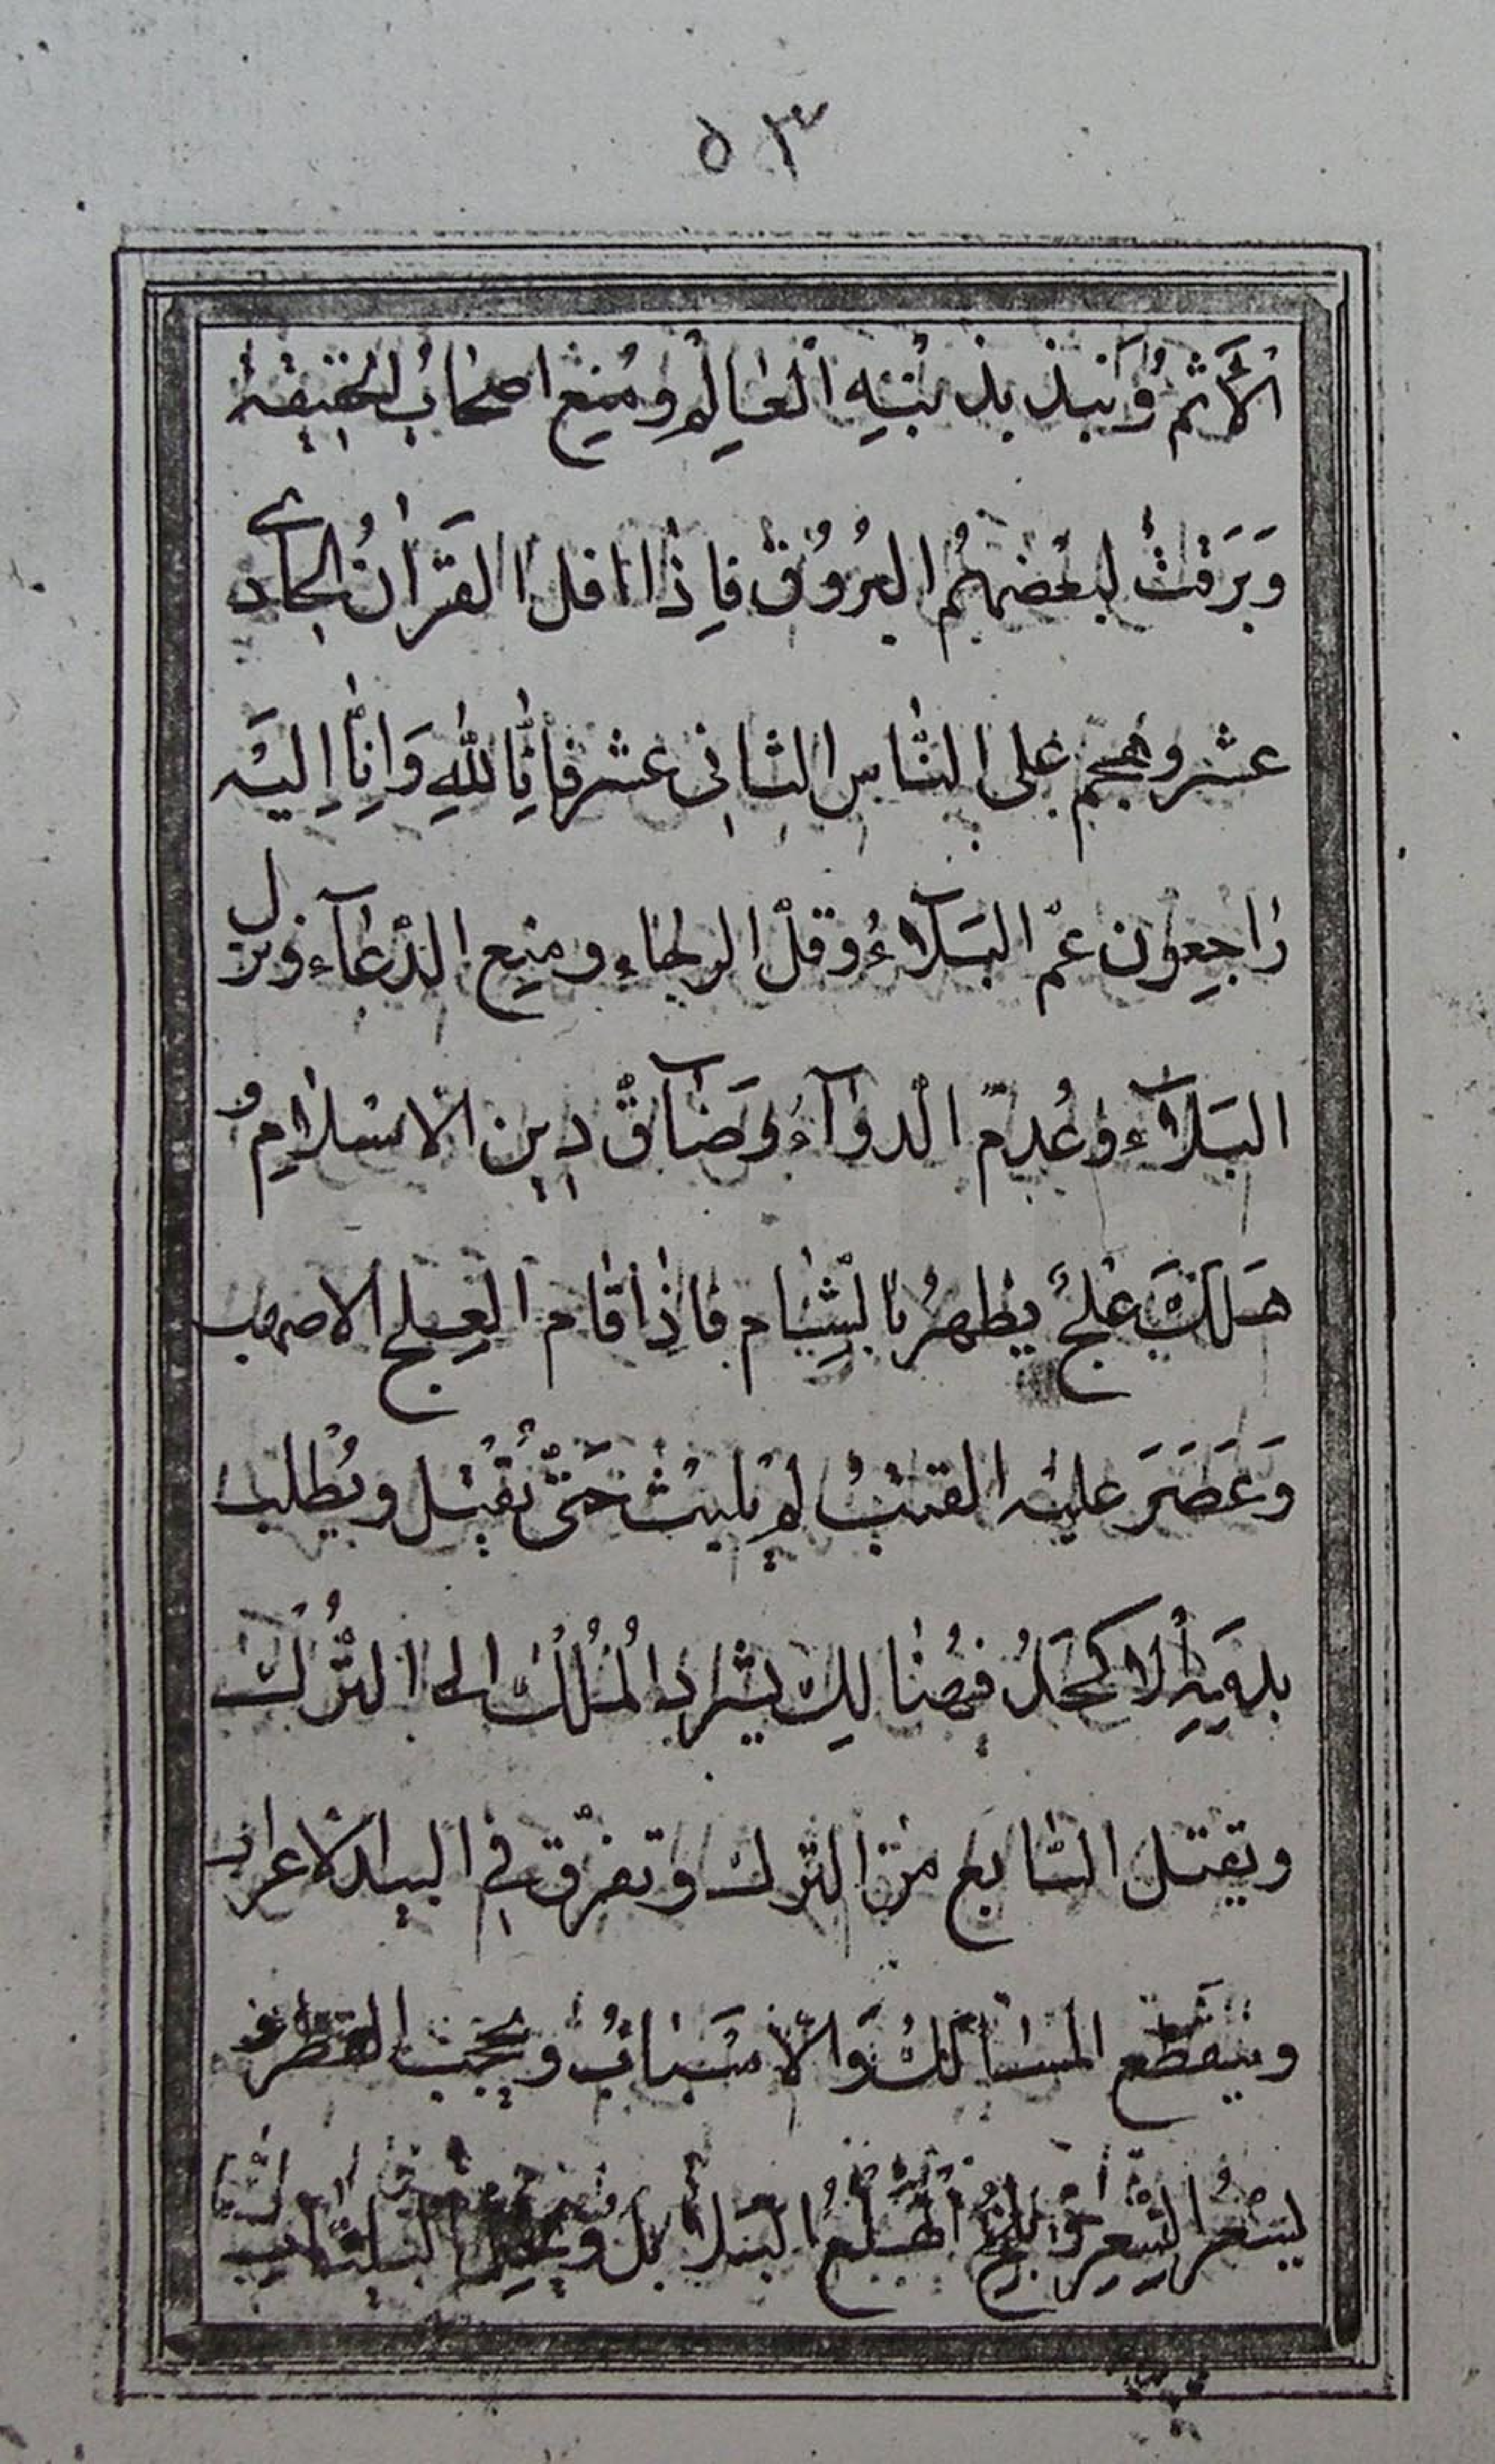 ٥٣
الأثم ونبذ بذنبه العالم ومنع اصحاب الحقيقة
وَبَرَقَتْ لبعضهُم البُرُوقُ فاِذا افل القرَانُ الحادى
عشر وهجم على النّاس الثانى عشر فانّا للهِ وَانّا اِليَه
راجعون عمّ البَلآءُ وقلّ الرجاء ومنع الدّعآء ونزل
البَلآء وعُدِمَ الدوآءُ وَضَآقَ دين الاسلام و
هَلَكَ عِلجٌ يظهرُ بالشّام فاذا قام العلج الاصهب
وَعَصَرَ عليه القتبُ لم يلبث حَتّى يُقتل ويُطلب
بدَمِهِ الاكحَلُ فهُنالِك يشرد المُلكُ الى التُّرك
ويقتل السّابع من الترك وتفرّق فى البيد الاعراب
وينقطع المسالكُ وَالاسبَابُ ويحجب